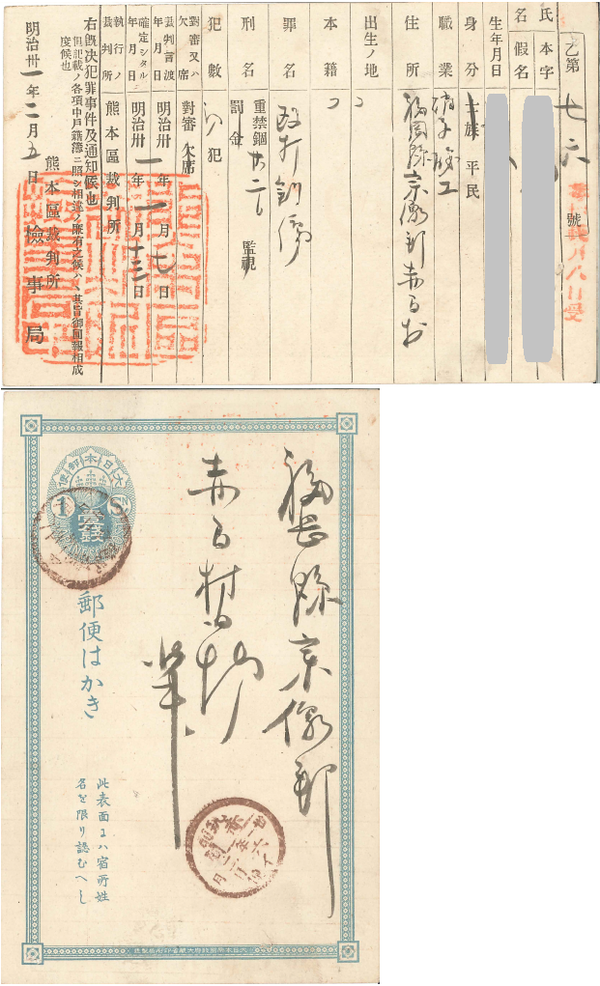 乙第七六號
氏名
本字
假名
生年月日
身分 士族 平民
職業 硝子職工
住所 福岡縣宗像郡赤間村
出生ノ地
本籍
罪名 毆打創傷
刑名
重禁錮
罰金
監視
犯數 初犯
對審又ハ欠席 對審 欠席
裁判言渡年月日 明治卅一年一月七日
確定シタル年月日 明治卅一年一月十三日
執行ノ裁判所 熊本區裁判所
右既决犯罪事件及通知候也
但記載ノ各項中戸籍簿ニ照シ相違ノ廉有之候ハヽ其旨御回報相成度候也
明治卅一年二月五日
熊本區裁判所
檢事局
大日本郵便
1 S
壹錢
郵便はかき
此表面にハ宿所姓
名を限り認むへし
福岡縣宗像郡
赤間村役場